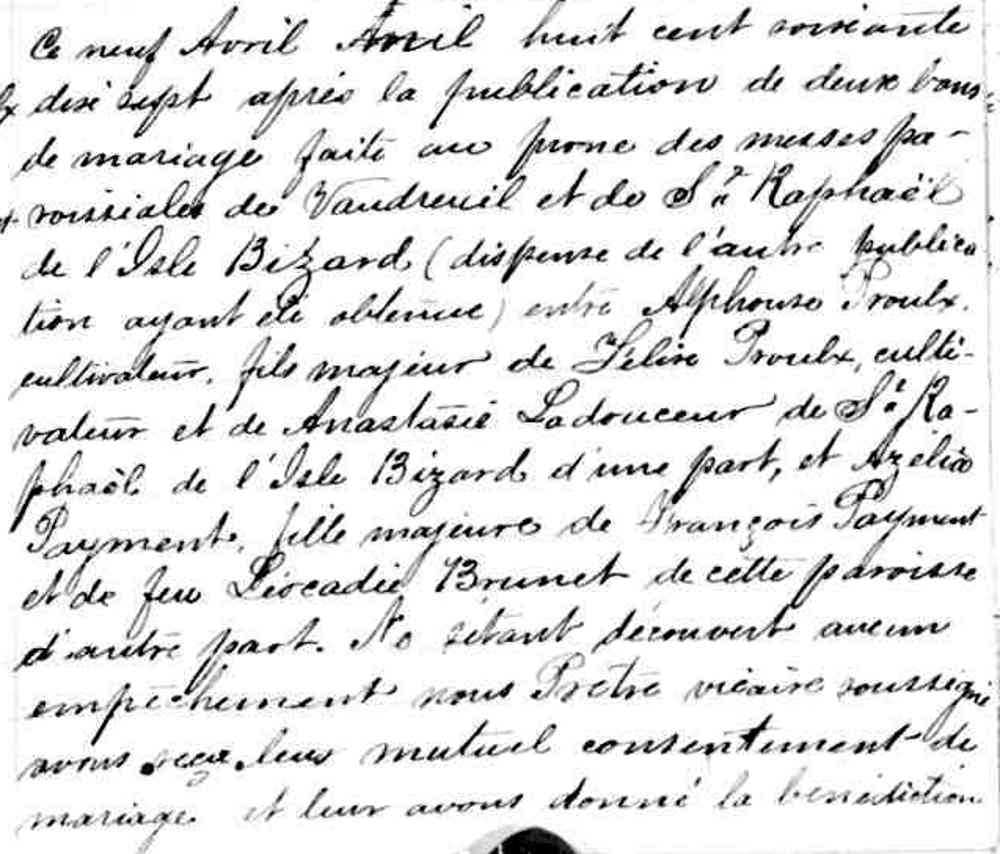 Ce neuf Avril Avril huit cent soixante
dix sept après la publication de deux bans
de mariage faite au prone des messes pa-
roissiales de Vaudreuil et de St Raphaël
de l'Isle Bizard (dispense de l'autre publica
tion ayant été obtenue) entre Alphonse Proulx,
cultivateur, fils majeur de Félix Proulx, culti-
vateur et de Anastasie Ladouceur de St Ra-
phaël de l'Isle Bizard d'une part, et Azélie
Payment, fille majeure de François Payment
et de feu Léocadie Brunet de cette paroisse
d'autre part. Ne s'étant découvert aucun
empêchement nous Prêtre vicaire soussigné
avons reçu leur mutuel consentement de
mariage et leur avons donné la bénédiction